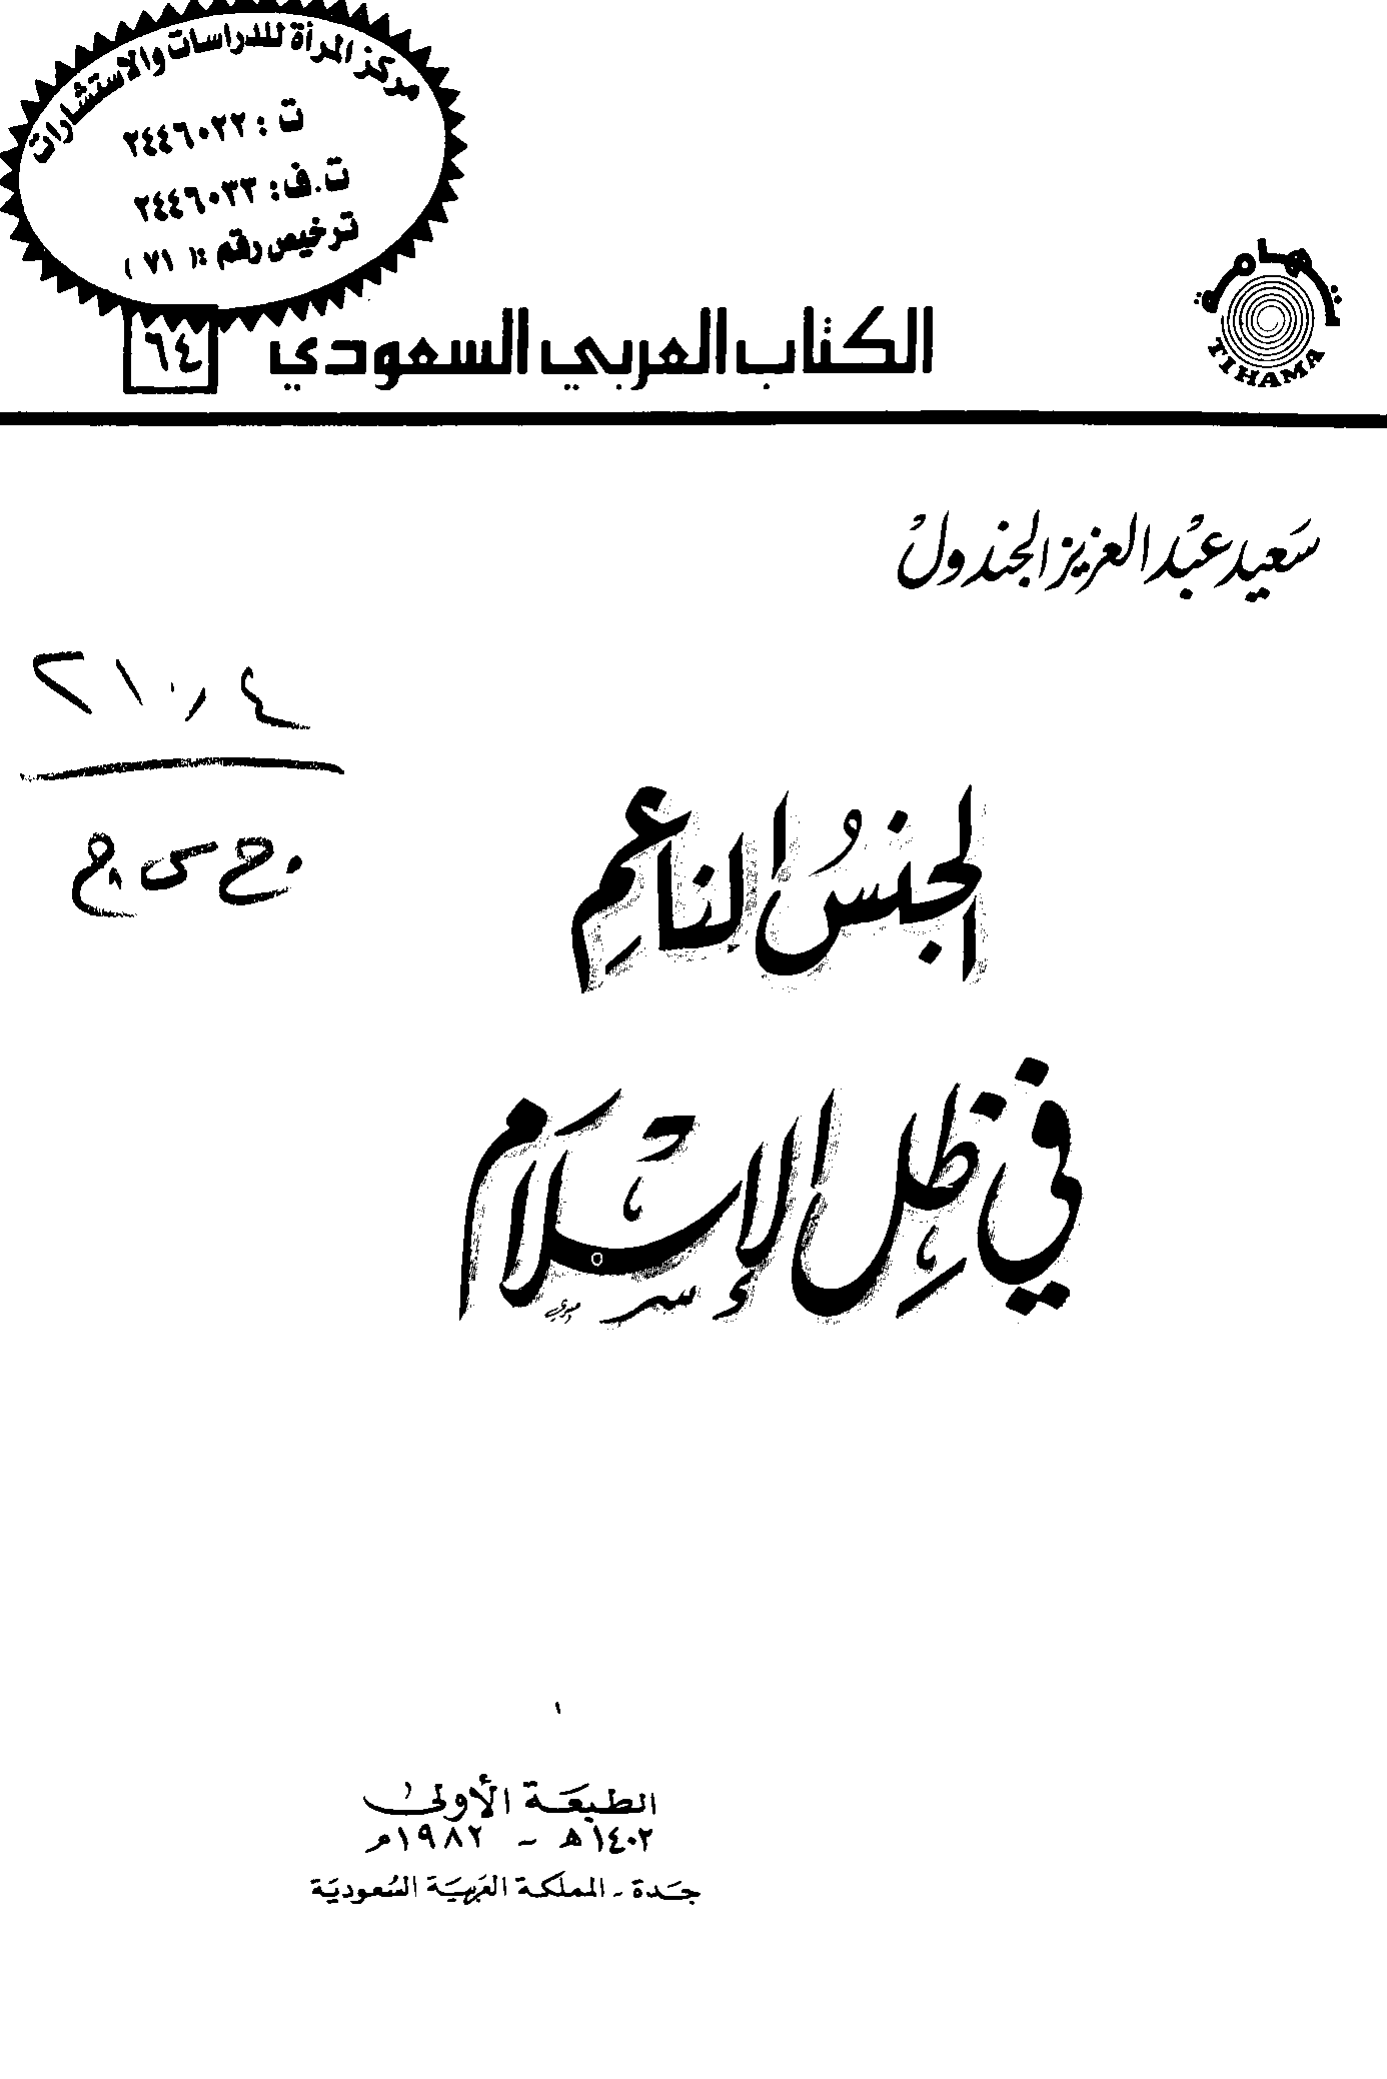 مركز المرأة للدراسات والاستشارات
ت : ٢٤٤٦٠٢٢
ت.ف: ٢٤٤٦٠٣٣
ترخيص رقم :( ٧١ )
تهامة
TIHAMA
الكتاب العربي السعودي ٦٤
سَعيد عَبْد العزيز الجندول
٢١٠٫٤
الجنسُ الناعِم
في ظِل الإسْلام
الطبعَة الأولى
١٤٠٢هـ - ١٩٨٢م
جَدة - المملكة العَربيَة السُعوديَة